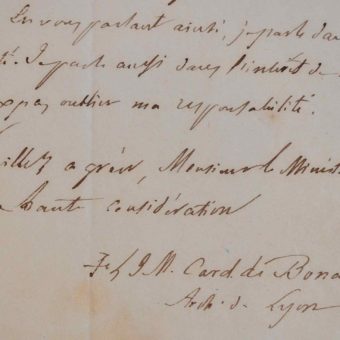 En vous parlant ainsi, je parle dans
té. Je parle aussi dans l'intérêt de
pas oublier ma responsabilité.
illez agréer, Monsieur le Minist
haute considération
+ L J M. Card. de Bona
Arch. de Lyon